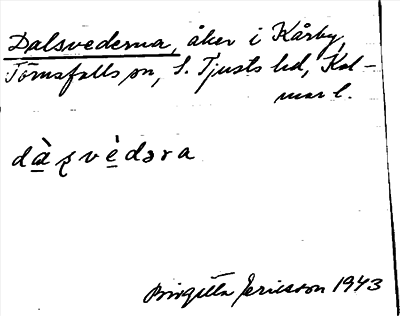 Dalsvederna, åker i Kårby,
Törnsfalls sn, S. Tjusts hd, Kal-
mar l.
dàʂvèdəra
Birgitta Jericsson 1943